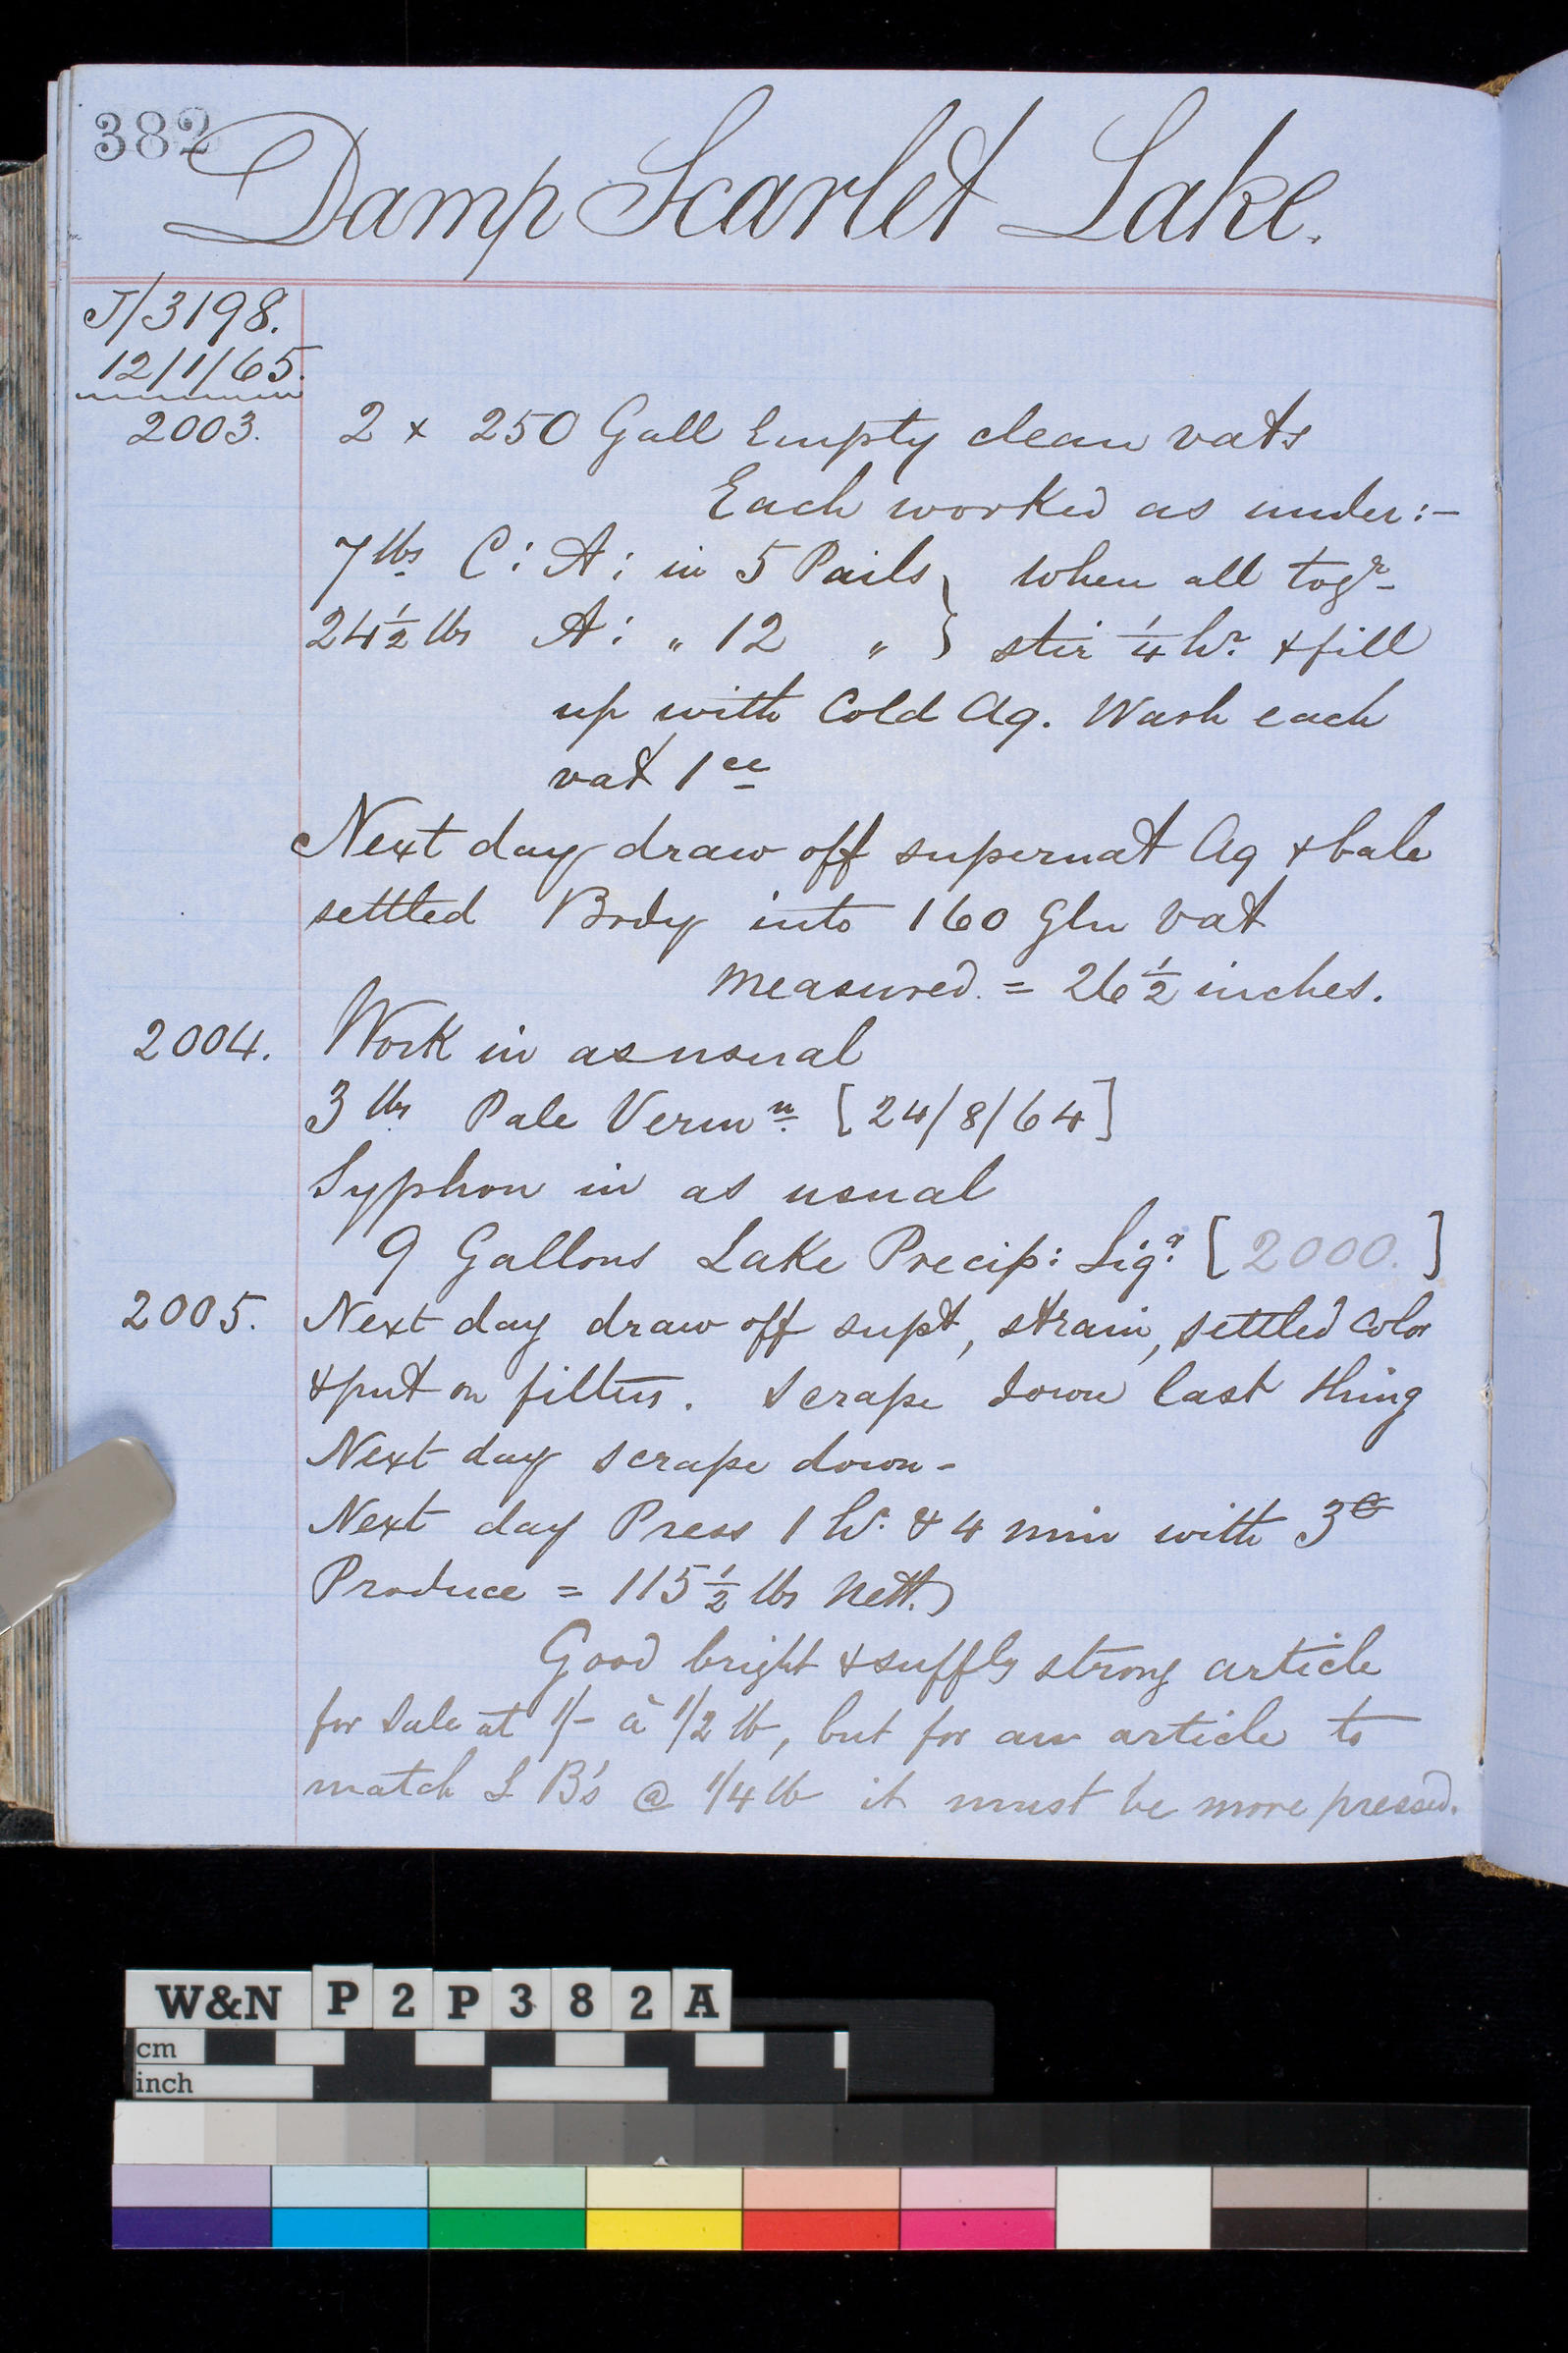 382
Damp Scarlet Lake.
J/3198.
12/1/65.
2003. 2 × 250 Gall Empty clean vats
Each worked as under:-
7 lbs C: A: in 5 Pails } when all togr
24½ lbs A: " 12 " } stir ¼ hr. & fill
up with Cold Aq. Wash each
vat 1ce
Next day draw off supernat Aq & bale
settled Body into 160 Gln vat
measured = 26½ inches.
2004. Work in as usual
3 lbs Pale Vermn. [24/8/64]
Syphon in as usual
9 Gallons Lake Precip: Liqr. [2000.]
2005. Next day draw off supt, strain, settled Color
& put on filters. Scrape down last thing
Next day scrape down -
Next day Press 1 hr. & 4 min with 3
Produce = 115½ lbs Nett.
Good bright & suffly strong article
for Sale at 1/- à 1/2 lb, but for an article to
match L B's @ 1/4 lb it must be more pressed.
W&N P2P382A
cm
inch